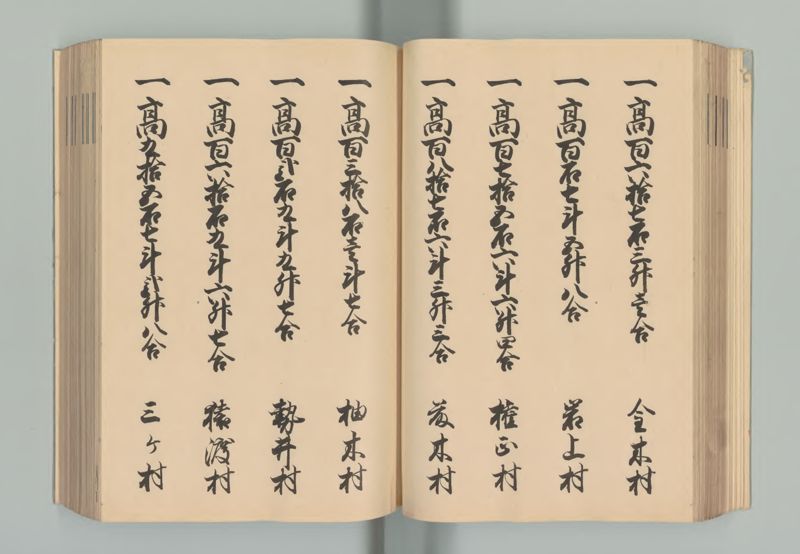 一高百六拾七石三升壱合 金木村
一高百石七斗五升八合 岩上村
一高百七拾五石六斗六升四合 権正村
一高百八拾七石六斗三升三合 茂木村
一高百三拾八石壱斗七合 柚木村
一高百弐石九斗九升七合 勢井村
一高百六拾石九斗六升七合 猿渡村
一高九拾五石七斗弐升八合 三ケ村